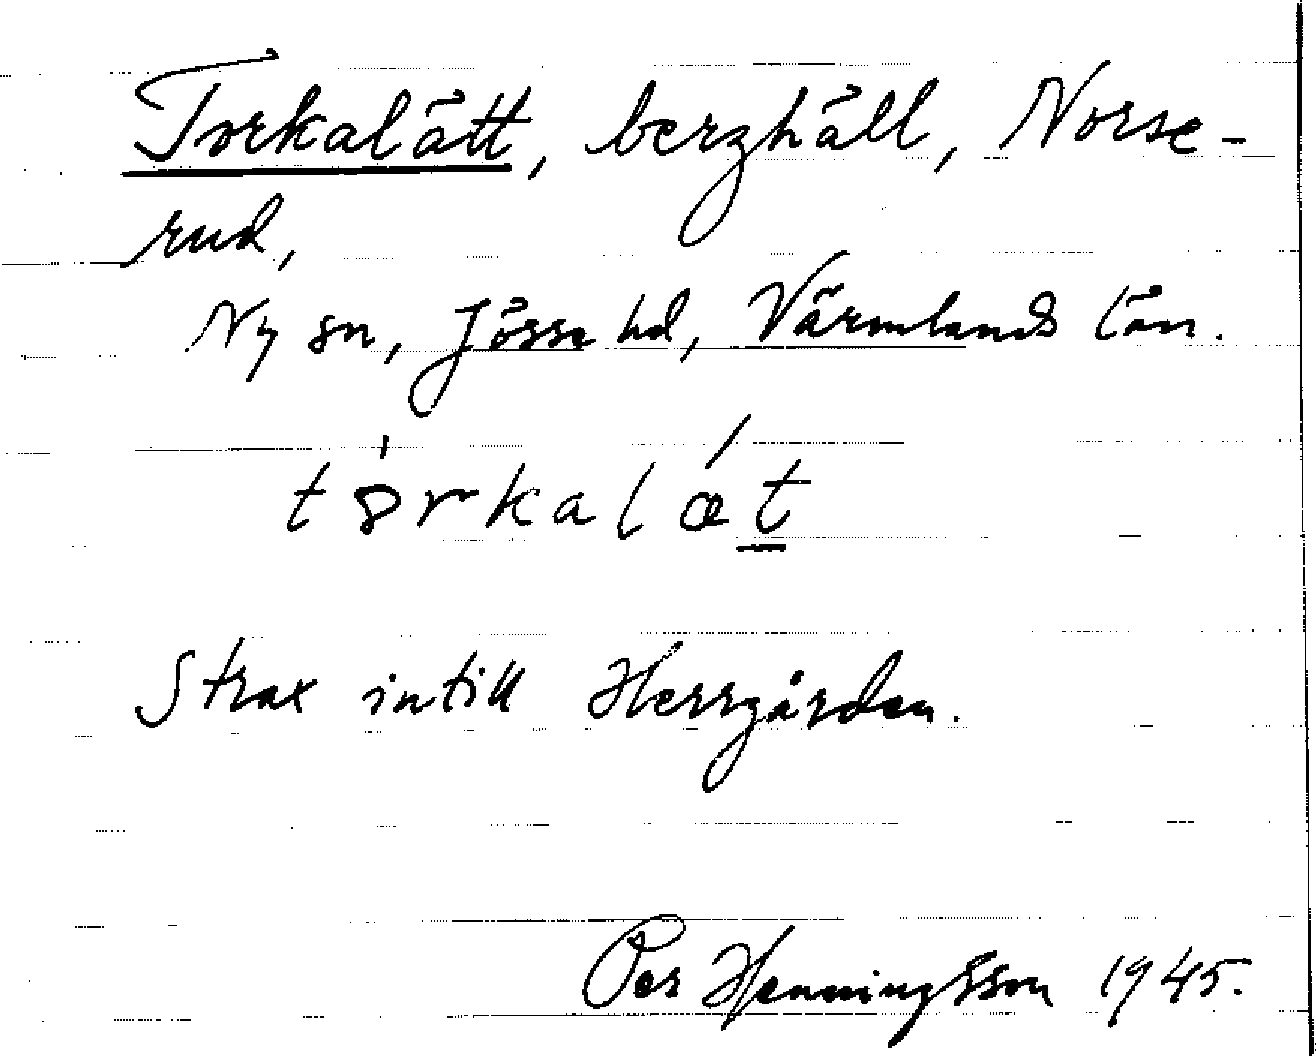 Torkalätt, berghäll, Norse-
rud,
Ny sn, Jösse hd, Värmlands län.
tȯrkalǽt
Strax intill Herrgården.
Per Henningsson 1945.